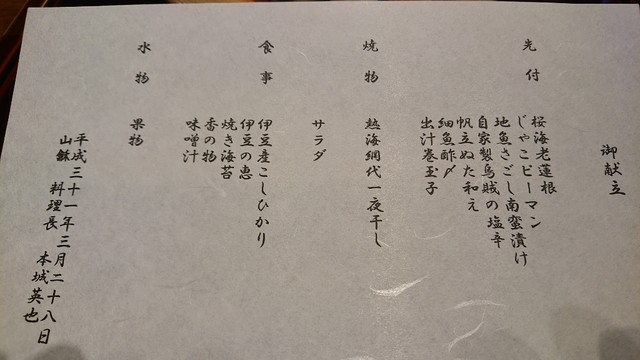 御献立
先付
桜海老蓮根
じゃこピーマン
地魚さごし南蛮漬け
自家製烏賊の塩辛
帆立ぬた和え
細魚酢〆
出汁巻玉子
サラダ
焼物
熱海網代一夜干し
食事
伊豆産こしひかり
伊豆の恵
焼き海苔
香の物
味噌汁
水物
果物
平成三十一年三月二十八日
料理長 本城英也